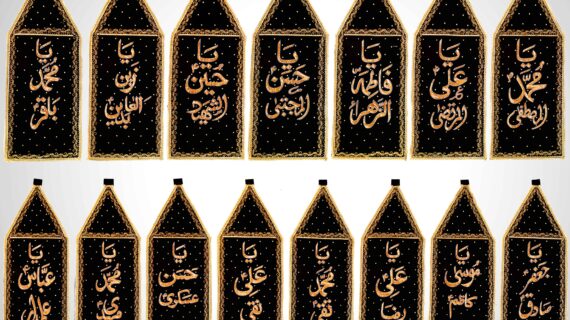 يا محمدؐ المصطفیٰ
يا علیؑ المرتضیٰ
يا فاطمۃ الزھراؑ
يا حسنؑ المجتبیٰ
يا حسینؑ الشھید
يا زین العابدین
يا محمد باقرؑ
يا جعفر صادق
يا موسیٰ کاظم
يا علی رضا
يا محمد تقی
يا علی نقی
يا حسن عسکری
يا محمد مہدی
يا عباسؑ